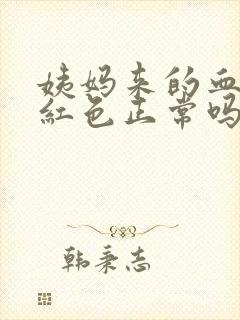 姨妈来的血
红色正常吗
韩秉志